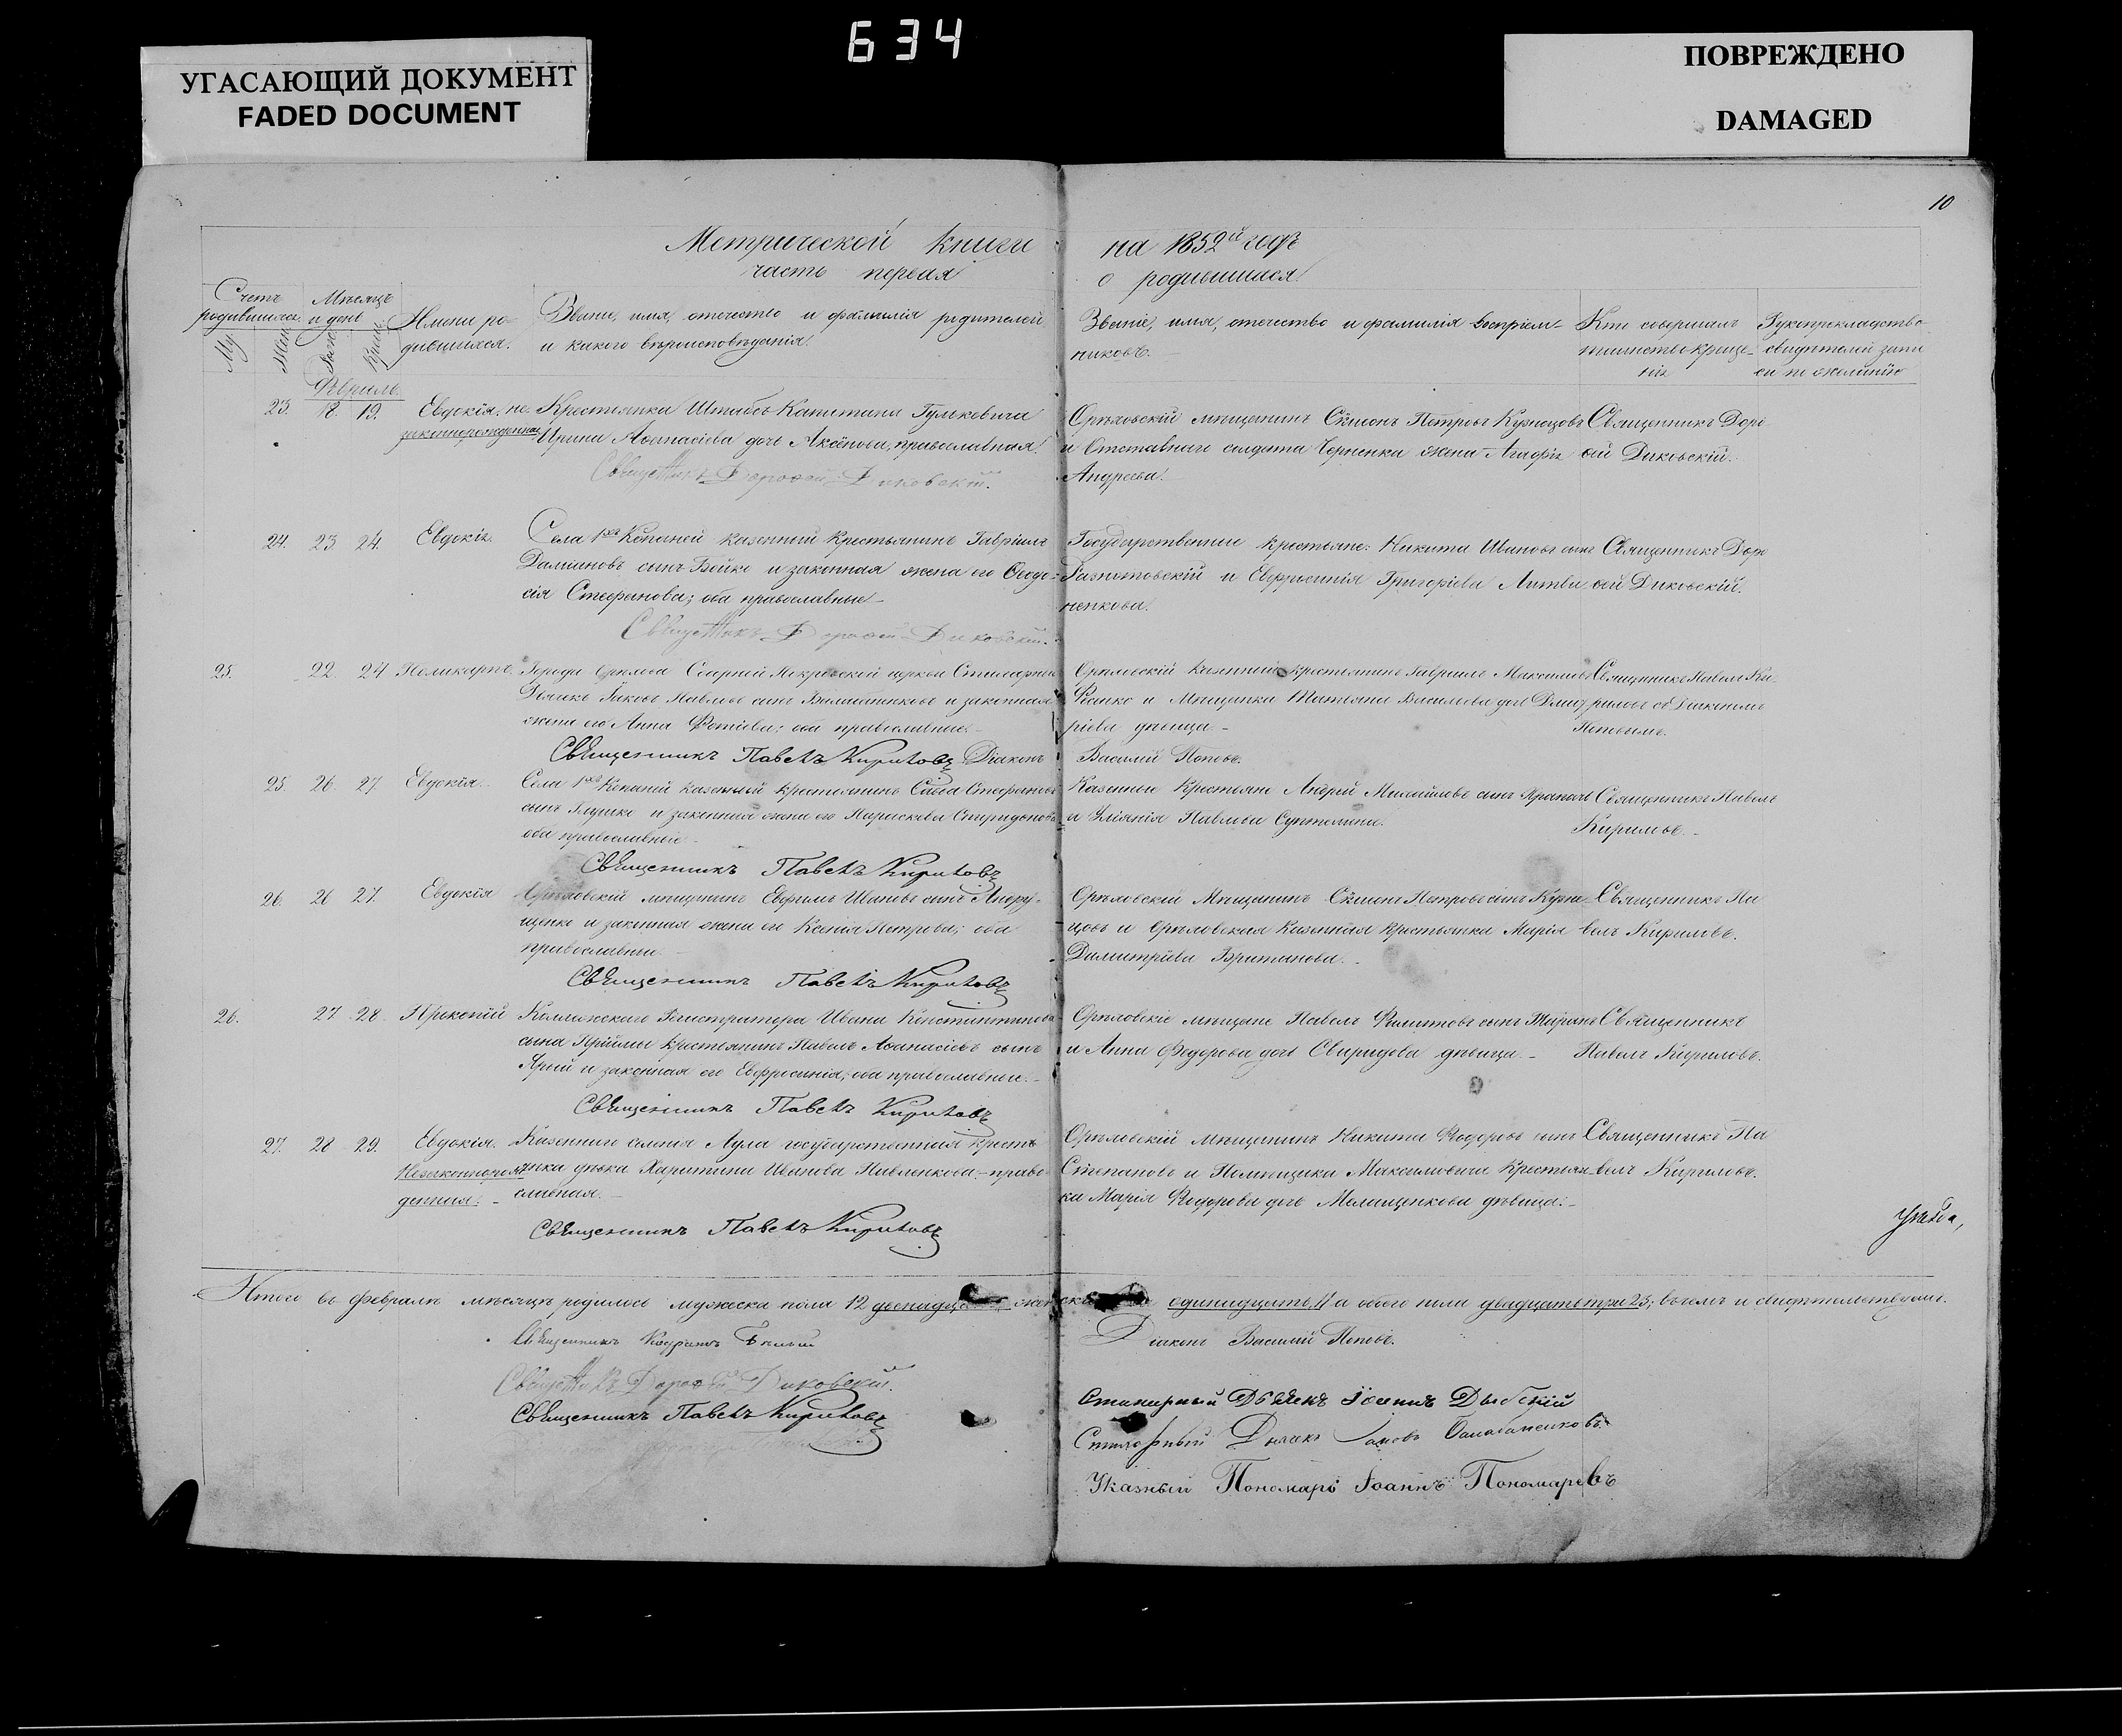 634
УГАСАЮЩИЙ ДОКУМЕНТ
FADED DOCUMENT
ПОВРЕЖДЕНО
DAMAGED
10
Метрической книги на 1852й годъ
часть первая о родившихся.
Счетъ родившихся.
Мѣсяцъ и день
Имена родившихся.
Званіе, имя, отечество и фамилія родителей,
и какого вѣроисповѣданія.
Званіе, имя, отечество и фамилія воспріем-
никовъ.
Кто совершалъ
таинство креще-
нія
Рукоприкладство
свидѣтелей запи
си по желанію
Февраль.
23. 18. 19. Евдокія, не-
законнорожденная
Крестьянка Штабсъ Капитана Гульковича
Ирина Афанасіева дочь Аксёнова, православная.
Священникъ Дорофей Диковскій.
Орѣховскій мѣщанинъ Симеонъ Петровъ Кузнецовъ
и Отставнаго солдата Черненка жена Агафія
Андреева.
Священникъ Доро
ѳей Диковскій.
24. 23. 24. Евдокія.
Села 1хъ Копаней казенный крестьянинъ Гавріилъ
Даміановъ сынъ Бойко и законная жена его Ѳеодо-
сія Стефанова; оба православные
Священникъ Дорофей Диковскій.
Государственные крестьяне: Никита Ивановъ сынъ
и Евфросинія Григоріева Литви
ненкова.
Священникъ Доро
ѳей Диковскій.
25. 22. 24 Поликарпъ.
Города Орѣхова Соборной Покровской церкви Стихарный
Дьякъ Іаковъ Павловъ сынъ и законная
жена его Анна Фотіева; оба православные
Священникъ Павелъ Кириловъ Діаконъ Василій Поповъ.
Орѣховскій казенный крестьянинъ Гавріилъ Максимовъ
и Мѣщанка Татьяна Васильева дочь Дмит
ріева дѣвица.
Священникъ Павелъ Ки-
риловъ съ Діакономъ
Поповымъ.
25. 26. 27. Евдокія.
Села 1хъ Копаней казенный крестьянинъ Савва Стефановъ
сынъ и законная жена его Параскева Спиридонова
оба православные
Священникъ Павелъ Кириловъ
Казенные Крестьяне Андрей Михайловъ сынъ
и Уліянія Павлова
Священникъ Павелъ
Кириловъ.
26. 26 27. Евдокія
Орѣховскій мѣщанинъ Евфимъ Ивановъ сынъ Андру-
щенко и законная жена его Ксенія Петрова; оба
православные.
Священникъ Павелъ Кириловъ
Орѣховскій Мѣщанинъ Симеонъ Петровъ сынъ Кузне-
цовъ и Орѣховская Казенная крестьянка Марія
Димитріева Британова.
Священникъ Па
велъ Кириловъ.
26. 27 28. Прокопій
Коллежскаго Регистратора Ивана Константинова
сына Пріймы крестьянинъ Павелъ Афанасіевъ сынъ
и законная его Евфросинія; оба православные.
Священникъ Павелъ Кириловъ
Орѣховскіе мѣщане Павелъ Филиповъ сынъ Таранъ
и Анна Федорова дочь Свиридова дѣвица.
Священникъ
Павелъ Кириловъ.
27. 28 29. Евдокія.
Незаконнорож
денная.
Казеннаго селенія Аула государственная кресть
янка дѣвка Харитина Иванова Павленкова, право-
славная.
Священникъ Павелъ Кириловъ
Орѣховскій мѣщанинъ Никита Федоровъ сынъ
Степановъ и Помѣщика Максимовича крестьян-
ка Марія Федорова дочь дѣвица.
Священникъ Па
велъ Кириловъ.
Итого въ февралѣ мѣсяцѣ родилось мужеска пола 12 единнадцать, 11 а обоего пола двадцать три 23; въ чемъ и свидѣтельствуемъ.
Священникъ Кодратъ Бѣлый
Священникъ Дорофей Диковскій.
Священникъ Павелъ Кириловъ
Діаконъ Василій Поповъ.
Стихарный Дьячекъ Іосифъ
Стихарный Дьякъ Іаковъ
Указный Пономарь Іоаннъ Пономаревъ